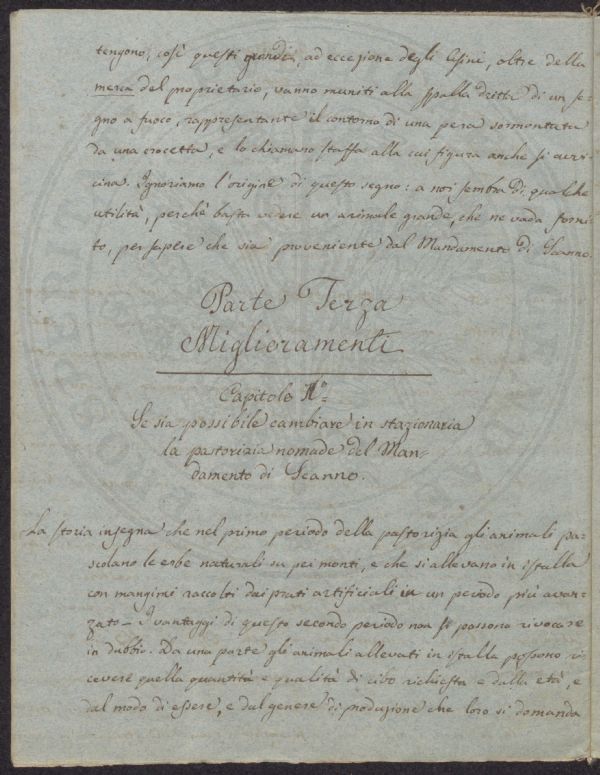 tengono, così questi grandi, ad eccezione degli Asini, oltre della
merca del proprietario, vanno muniti alla spalla dritta di un se-
gno a fuoco, rappresentante il contorno di una pera sormontata
da una crocetta, e lo chiamano staffa alla cui figura anche si avvi-
cina. Ignoriamo l'origine di questo segno: a noi sembra di qualche
utilità, perchè basta vedere un animale grande, che ne vada forni-
to, per sapere che sia proveniente dal Mandamento di Scanno.
Parte Terza
Miglioramenti
Capitolo 1º
Se sia possibile cambiare in stazionaria
la pastorizia nomade del Man-
damento di Scanno.
La storia insegna che nel primo periodo della pastorizia gli animali pa-
scolano le erbe naturali su pei monti, e che si allevano in istalla
con mangimi raccolti dai prati artificiali in un periodo più avan-
zato - I vantaggi di questo secondo periodo non si possono rivocare
in dubbio. Da una parte gli animali allevati in istalla possono ri-
cevere quella quantità e qualità di cibo richiesta e dalla età, e
dal modo di essere, e dal genere di produzione che loro si domanda